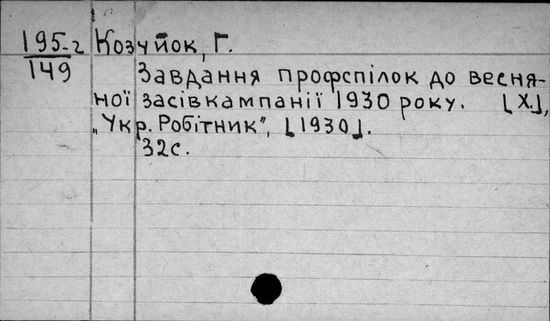 195-г Козуйок, Г.
149
Завдання профспілок до весня-
ної засівкампанії 1930 року. [Х.],
„Укр. Робітник", [1930].
32с.